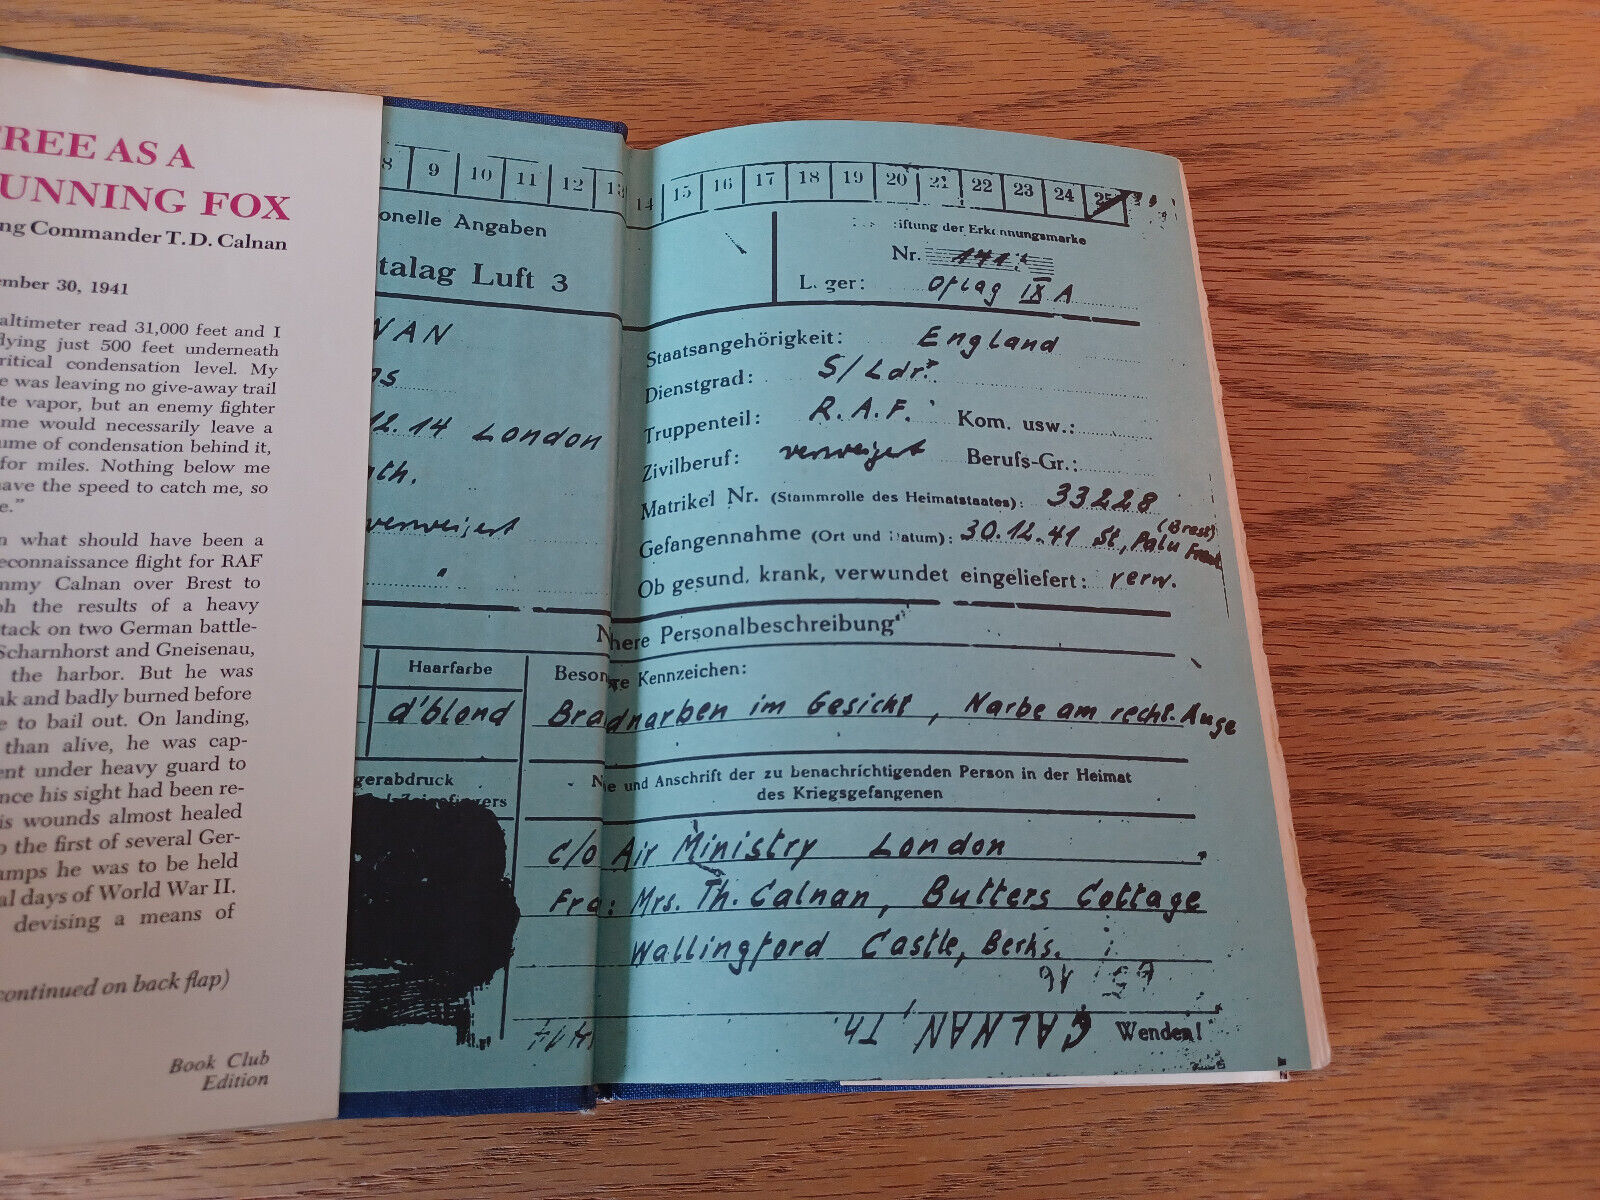 FREE AS A
RUNNING FOX
ng Commander T. D. Calnan
ember 30, 1941
altimeter read 31,000 feet and I
flying just 500 feet underneath
critical condensation level. My
e was leaving no give-away trail
te vapor, but an enemy fighter
me would necessarily leave a
ume of condensation behind it,
for miles. Nothing below me
have the speed to catch me, so
e."
n what should have been a
reconnaissance flight for RAF
mmy Calnan over Brest to
ph the results of a heavy
ttack on two German battle-
Scharnhorst and Gneisenau,
the harbor. But he was
ak and badly burned before
e to bail out. On landing,
than alive, he was cap-
ent under heavy guard to
nce his sight had been re-
is wounds almost healed
o the first of several Ger-
amps he was to be held
al days of World War II.
devising a means of
continued on back flap)
Book Club
Edition
8 9 10 11 12 13 14 15 16 17 18 19 20 21 22 23 24 25
onelle Angaben
talag Luft 3
NAN
os
12.14 London
ath.
verweigert
Haarfarbe
d'blond
gerabdruck
iftung der Erkennungsmarke
Nr.
Lager: Oflag IX A
Staatsangehörigkeit: England
Dienstgrad: S/Ldr.
Truppenteil: R.A.F. Kom. usw.:
Zivilberuf: verweigert Berufs-Gr.:
Matrikel Nr. (Stammrolle des Heimatstaates): 33228
Gefangennahme (Ort und Datum): 30.12.41 St, Palu (Brest)
Ob gesund, krank, verwundet eingeliefert: verw.
Nähere Personalbeschreibung
Besondere Kennzeichen:
Bradnarben im Gesicht, Narbe am recht. Auge
Name und Anschrift der zu benachrichtigenden Person in der Heimat
des Kriegsgefangenen
c/o Air Ministry London
Fra: Mrs. Th. Calnan, Butters Cottage
Wallingford Castle, Berks.
CALNAN, Th.
Wenden!